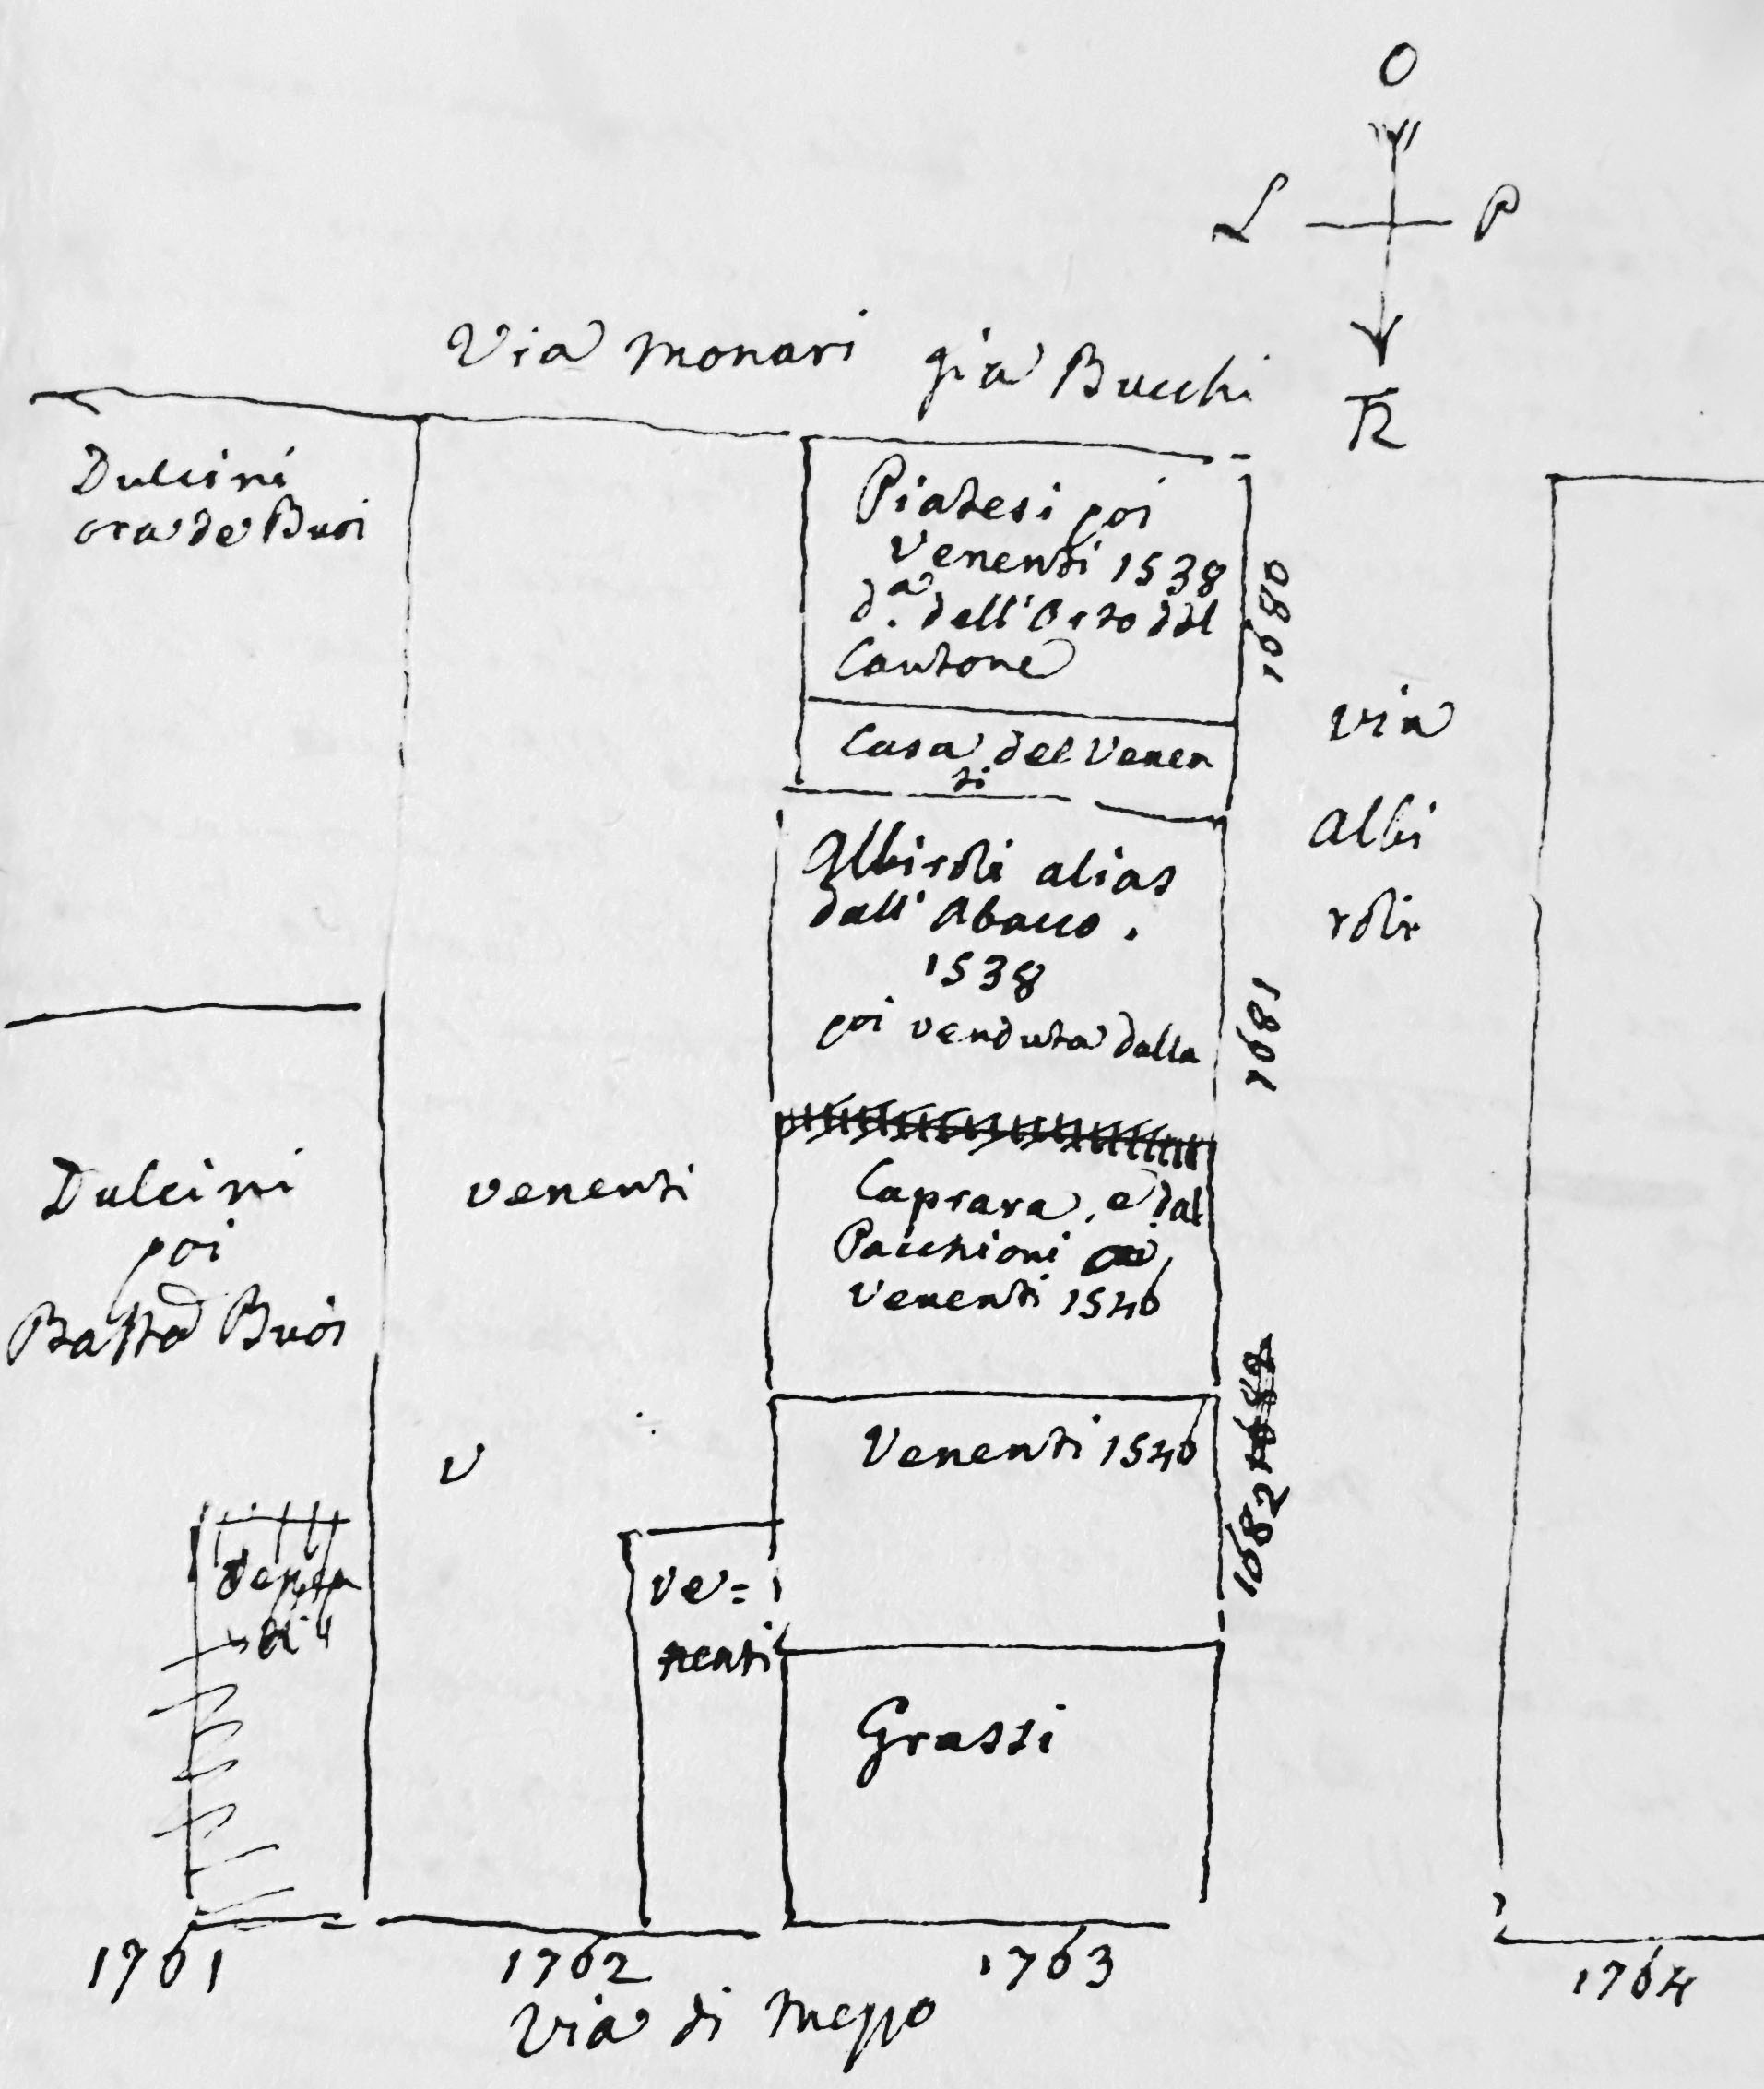 O
L P
TR
Via Monari già Bucchi
Dulcini
ora de Buoi
Piatesi poi
Venenti 1538
d.a dell'Orto del
Cantone
1680
Casa del Venen
ti
via
Albi
roli
Albiroli alias
dall' Abacco.
1538
poi venduta dalla
1681
Caprara, e dal
Pacchioni
Venenti 1546
Dulcini
poi
Batta Buoi
venenti
Venenti 1546
1682
V
ve=
nenti
Grassi
1761
1762
1763
1764
Via di Mezzo